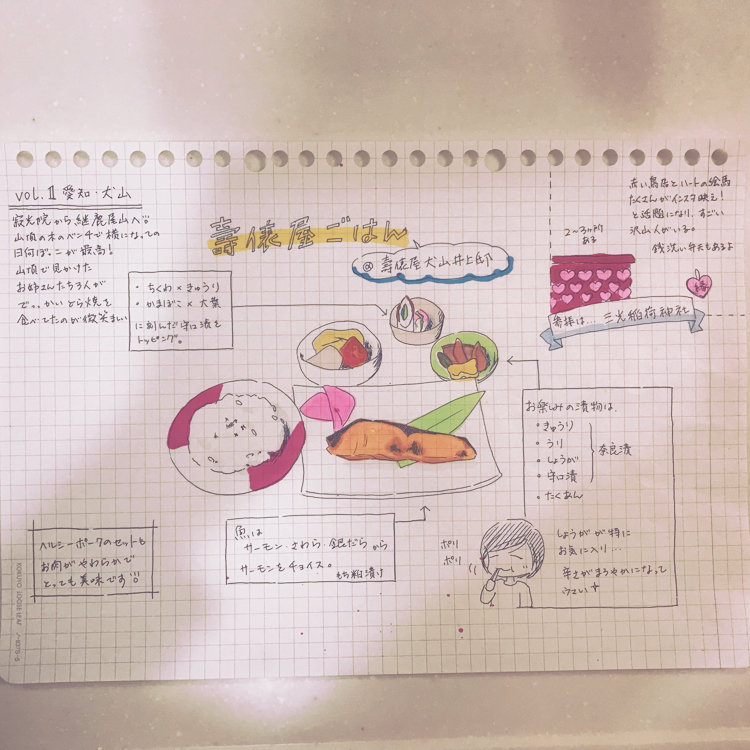 vol.Ⅱ 愛知・犬山
寂光院から継鹿尾山へ!!
山頂の木のベンチで横になっての
日向ぼっこが最高!
山頂で見かけた
お姉さんたち3人が
でっっかいどら焼を
食べてたのが微笑ましい
壽俵屋ごはん
@壽俵屋犬山井上邸
・ちくわ×きゅうり
・かまぼこ×大葉
に刻んだ守口漬を
トッピング。
赤い鳥居とハートの絵馬
たくさんがインスタ映え!
と話題になり、すごい
沢山人がいる。
銭洗い弁天もあるよ
2~3ヶ所
ある
縁
寄拝は... 三光稲荷神社
お楽しみの漬物は、
・きゅうり
・うり
・しょうが
・守口漬
奈良漬
・たくあん
ポリ
ポリ
しょうがが特に
お気に入り...
辛さがまろやかになって
うまい
魚は
サーモン・さわら・銀だらから
サーモンをチョイス。
もち粕漬け
ヘルシーポークのセットも
お肉がやわらかで
とっても美味です!!
KOKUYO LOOSE LEAF